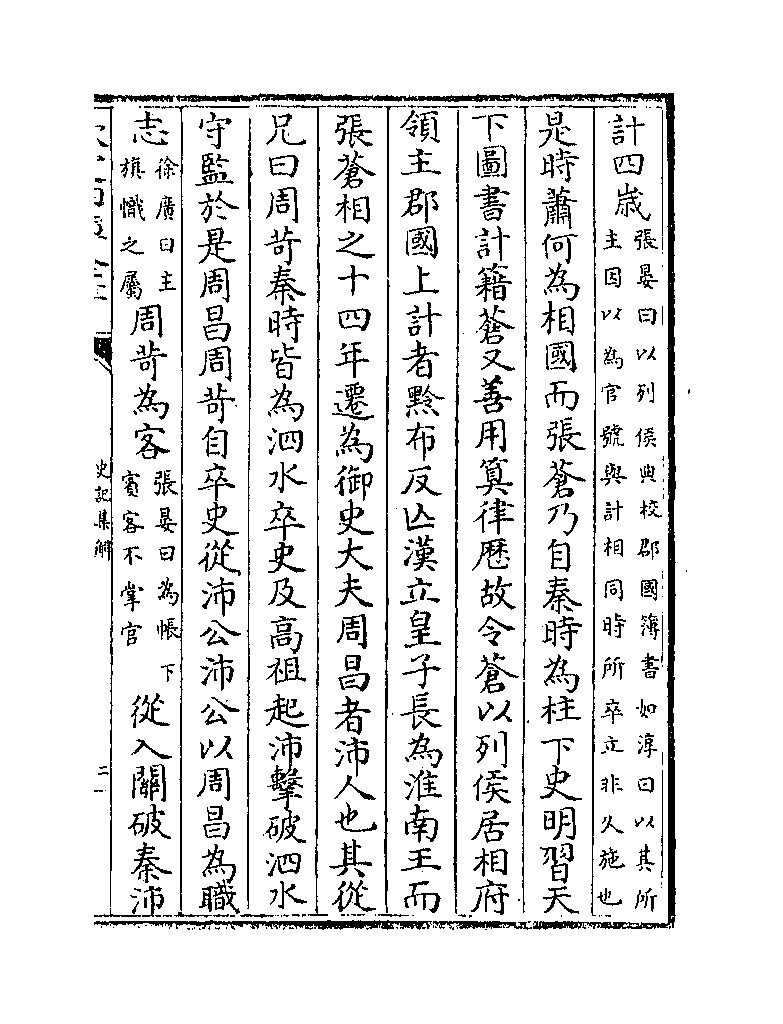 計四歲張晏曰以列侯典校郡國簿書如淳曰以其所主因以為官號與計相同時所卒立非久施也
是時蕭何為相國而張蒼乃自秦時為柱下史明習天
下圖書計籍蒼又善用算律厯故令蒼以列侯居相府
領主郡國上計者黥布反亡漢立皇子長為淮南王而
張蒼相之十四年遷為御史大夫周昌者沛人也其從
兄曰周苛秦時皆為泗水卒史及高祖起沛擊破泗水
守監於是周昌周苛自卒史從沛公沛公以周昌為職
志徐廣曰主旗幟之屬周苛為客張晏曰為帳下賓客不掌官從入關破秦沛
史記集解
二